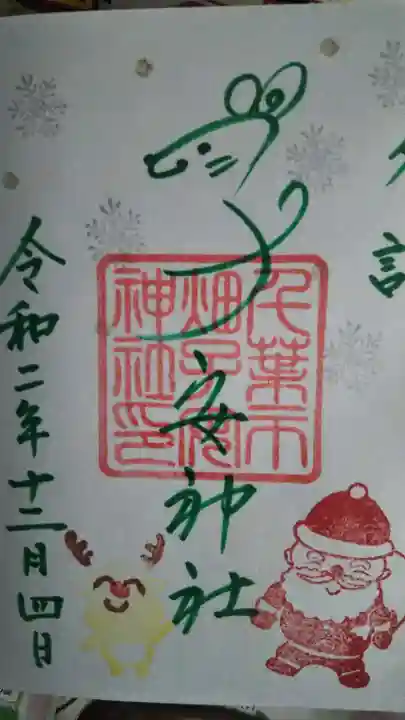 千葉市
畑子安
神社印
安神社
令和二年十二月四日